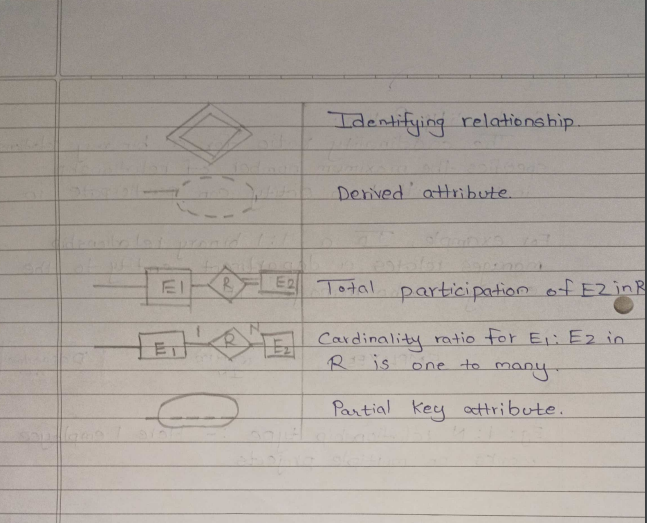 Identifying relationship.
Derived attribute.
E1 R E2 Total participation of E2 in R
E1 1 R N E2 Cardinality ratio for E1: E2 in
R is one to many.
Partial key attribute.